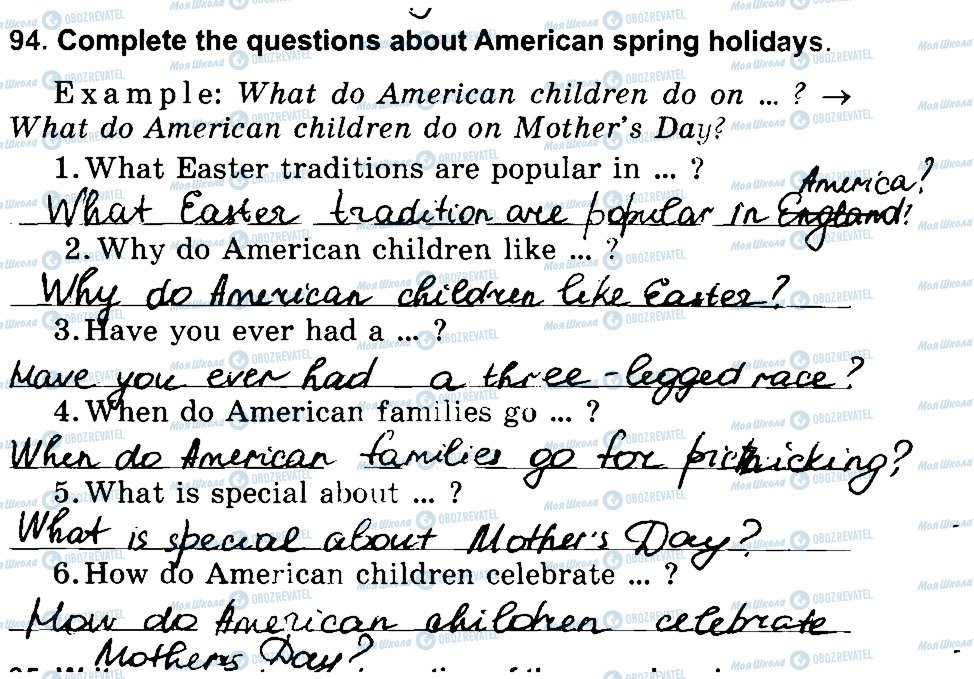 94. Complete the questions about American spring holidays.
Example: What do American children do on ... ? →
What do American children do on Mother's Day?
1. What Easter traditions are popular in ... ?
America?
What Easter tradition are popular in England?
2. Why do American children like ... ?
Why do American children like Easter?
3. Have you ever had a ... ?
Have you ever had a three-legged race?
4. When do American families go ... ?
When do American families go for picknicking?
5. What is special about ... ?
What is special about Mother's Day?
6. How do American children celebrate ... ?
How do American children celebrate
Mother's Day?